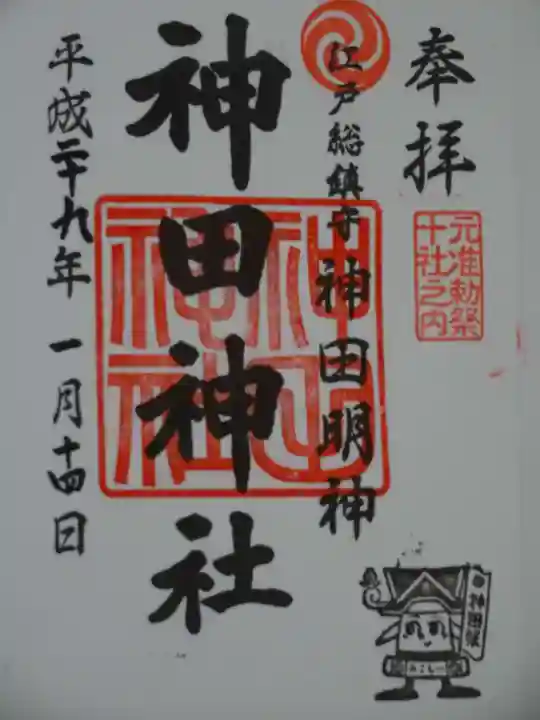 奉拝
元准勅祭
十社之内
江戸総鎮守 神田明神
神田神社
神田神社
平成二十九年 一月十四日
神田祭
みこしー